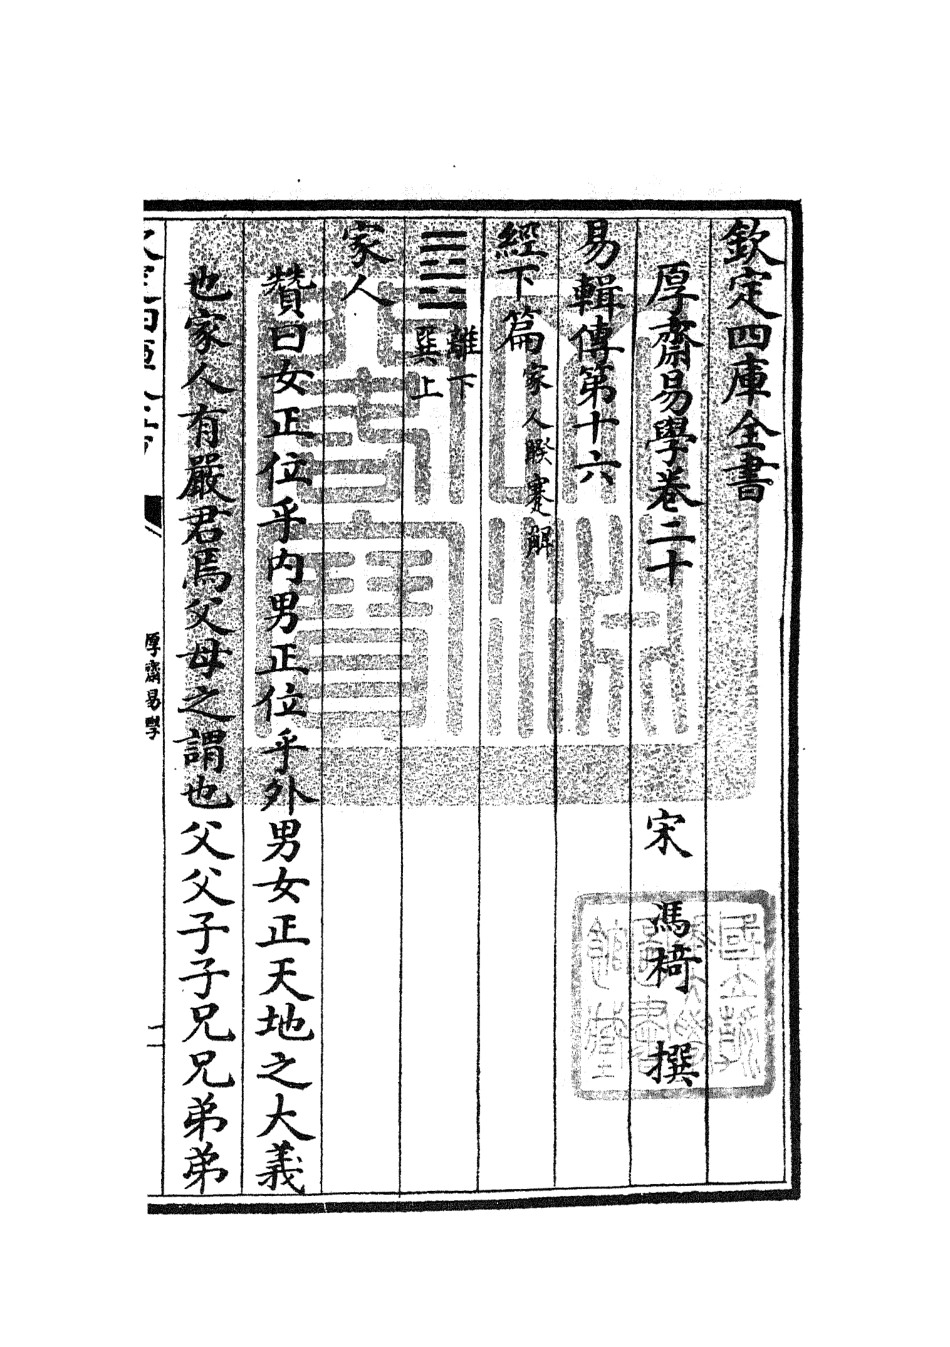 欽定四庫全書
厚齋易學卷二十　宋　馮椅　撰
易輯傳第十六
經下篇 家人睽蹇解
䷤ 離下 巽上
家人
贊曰女正位乎内男正位乎外男女正天地之大義
也家人有嚴君焉父母之謂也父父子子兄兄弟弟
厚齋易學
一